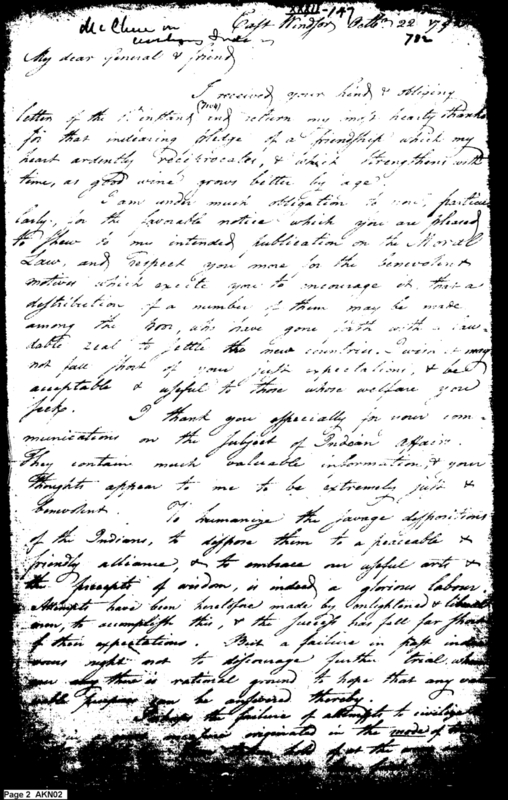 XXXII-147
McClure on
East Windsor Octbr 22 179
702
My dear General & friend
I received your kind & obliging
letter of the 1st instant, and return my most hearty thanks
for that endearing pledge of a friendship which my
heart ardently reciprocates, & which strengthens with
time, as good wine grows better by age.
I am under much obligation to you, particu
larly, for the favorable notice which you are pleased
to shew to my intended publication on the Moral
Law, and respect you more for the benevolent
motives which excite you to encourage it, that a
distribution of a number of them may be made
among the poor, who have gone forth with a lau-
dable zeal to settle the new countries. I wish it may
not fall short of your just expectations, & be
acceptable & useful to those whose welfare you
seek.
I thank you especially for your com-
munications on the subject of Indian Affairs.
They contain much valuable information, & your
thoughts appear to me to be extremely just &
benevolent. To humanize the savage dispositions
of the Indians, to dispose them to a peaceable &
friendly alliance, & to embrace our useful arts &
the precepts of wisdom, is indeed a glorious labour.
Attempts have been heretofore made by enlightened & liberal
men, to accomplish this, & the success has fell far short
of their expectations. But a failure in past
ought not to discourage further trial, when
there is rational ground to hope that any
purpose can be answered thereby.
Perhaps the failure of attempts to civilize
measure originated in the mode of
Page 2 AKN02